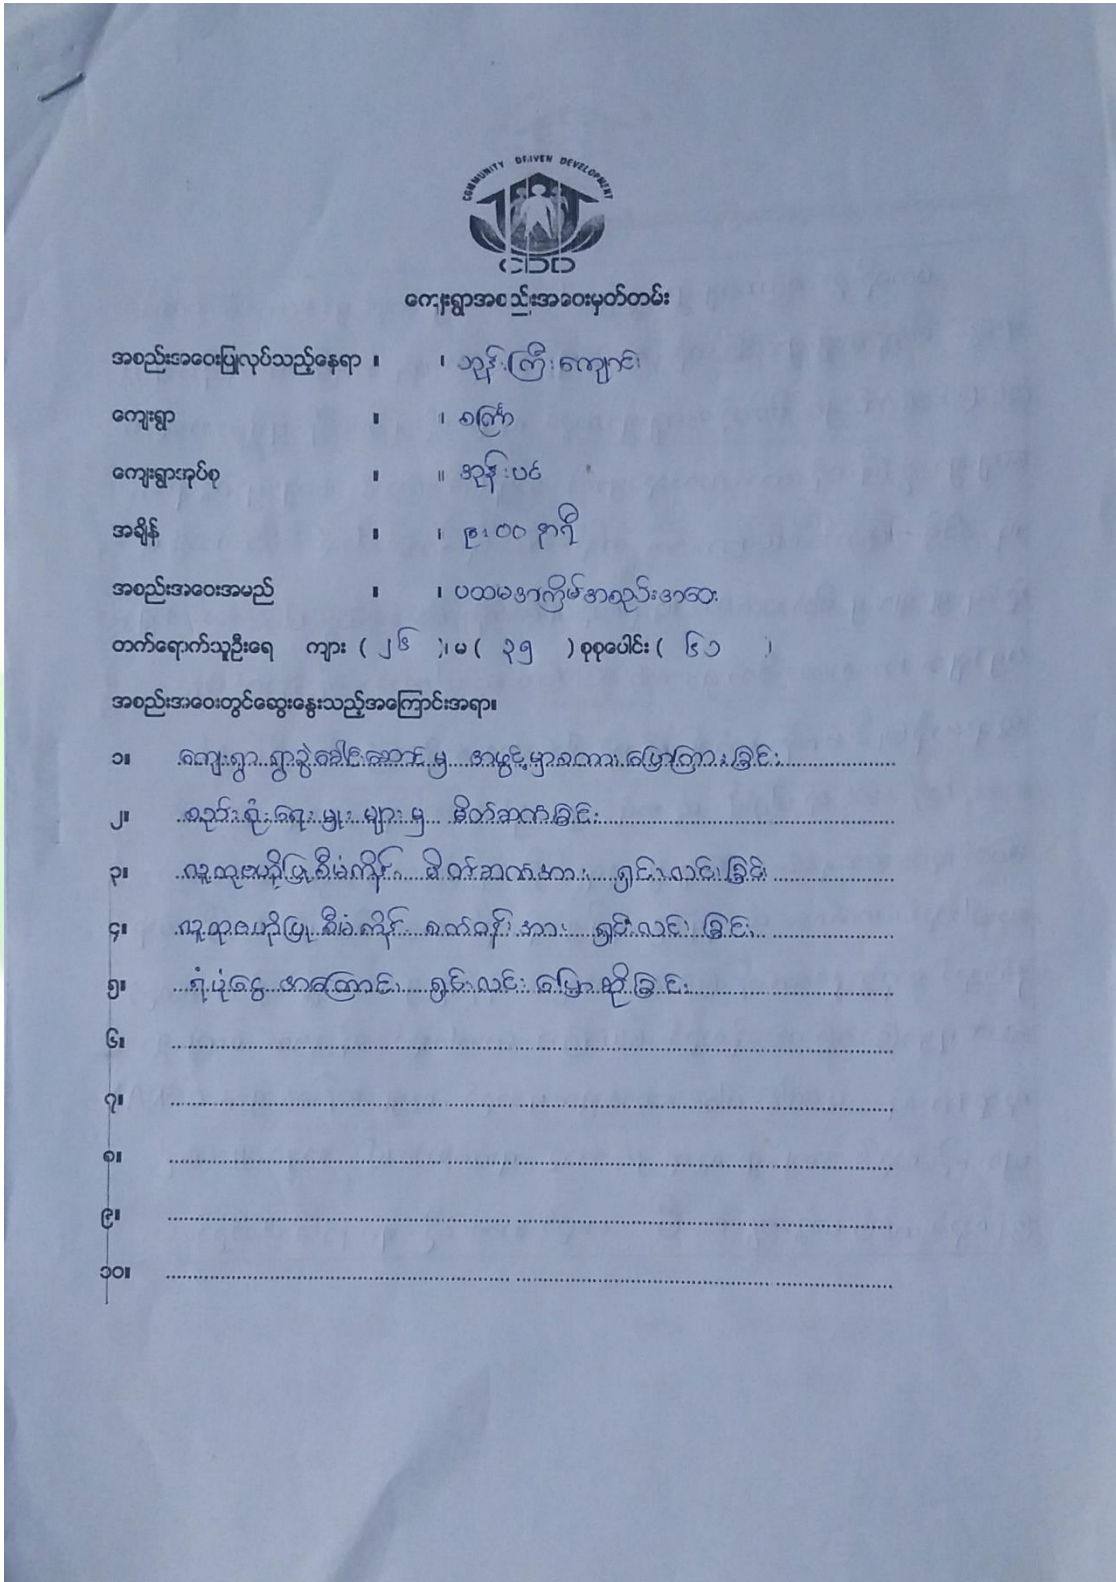 COMMUNITY DRIVEN DEVELOPMENT
CDD
ကျေးရွာအစည်းအဝေးမှတ်တမ်း
အစည်းအဝေးပြုလုပ်သည့်နေရာ ။ ၊ ဘုန်းကြီးကျောင်း
ကျေးရွာ ။ ။
ကျေးရွာအုပ်စု ။ ။ အုန်းပင်
အချိန် ။ ။ ၈:၀၀ နာရီ
အစည်းအဝေးအမည် ။ ၊ ပထမအကြိမ်အစည်းအဝေး
တက်ရောက်သူဦးရေ ကျား ( ၂၆ )၊ မ ( ၃၅ ) စုစုပေါင်း ( ၆၁ )
အစည်းအဝေးတွင်ဆွေးနွေးသည့်အကြောင်းအရာ။
၁။ ကျေးရွာ ရွာခွဲခေါင်းဆောင် မှ အဖွင့်မှာစကား ပြောကြားခြင်း
၂။ စည်းရုံးရေးမှူး များ မှ မိတ်ဆက်ခြင်း
၃။ လူထုဗဟိုပြု စီမံကိန်း မိတ်ဆက်အား ရှင်းလင်းခြင်း
၄။ လူထုဗဟိုပြု စီမံကိန်း စက်ဝန်းအား ရှင်းလင်းခြင်း
၅။ ရံပုံငွေ အကြောင်း ရှင်းလင်း ပြောဆိုခြင်း
၆။
၇။
၈။
၉။
၁၀။